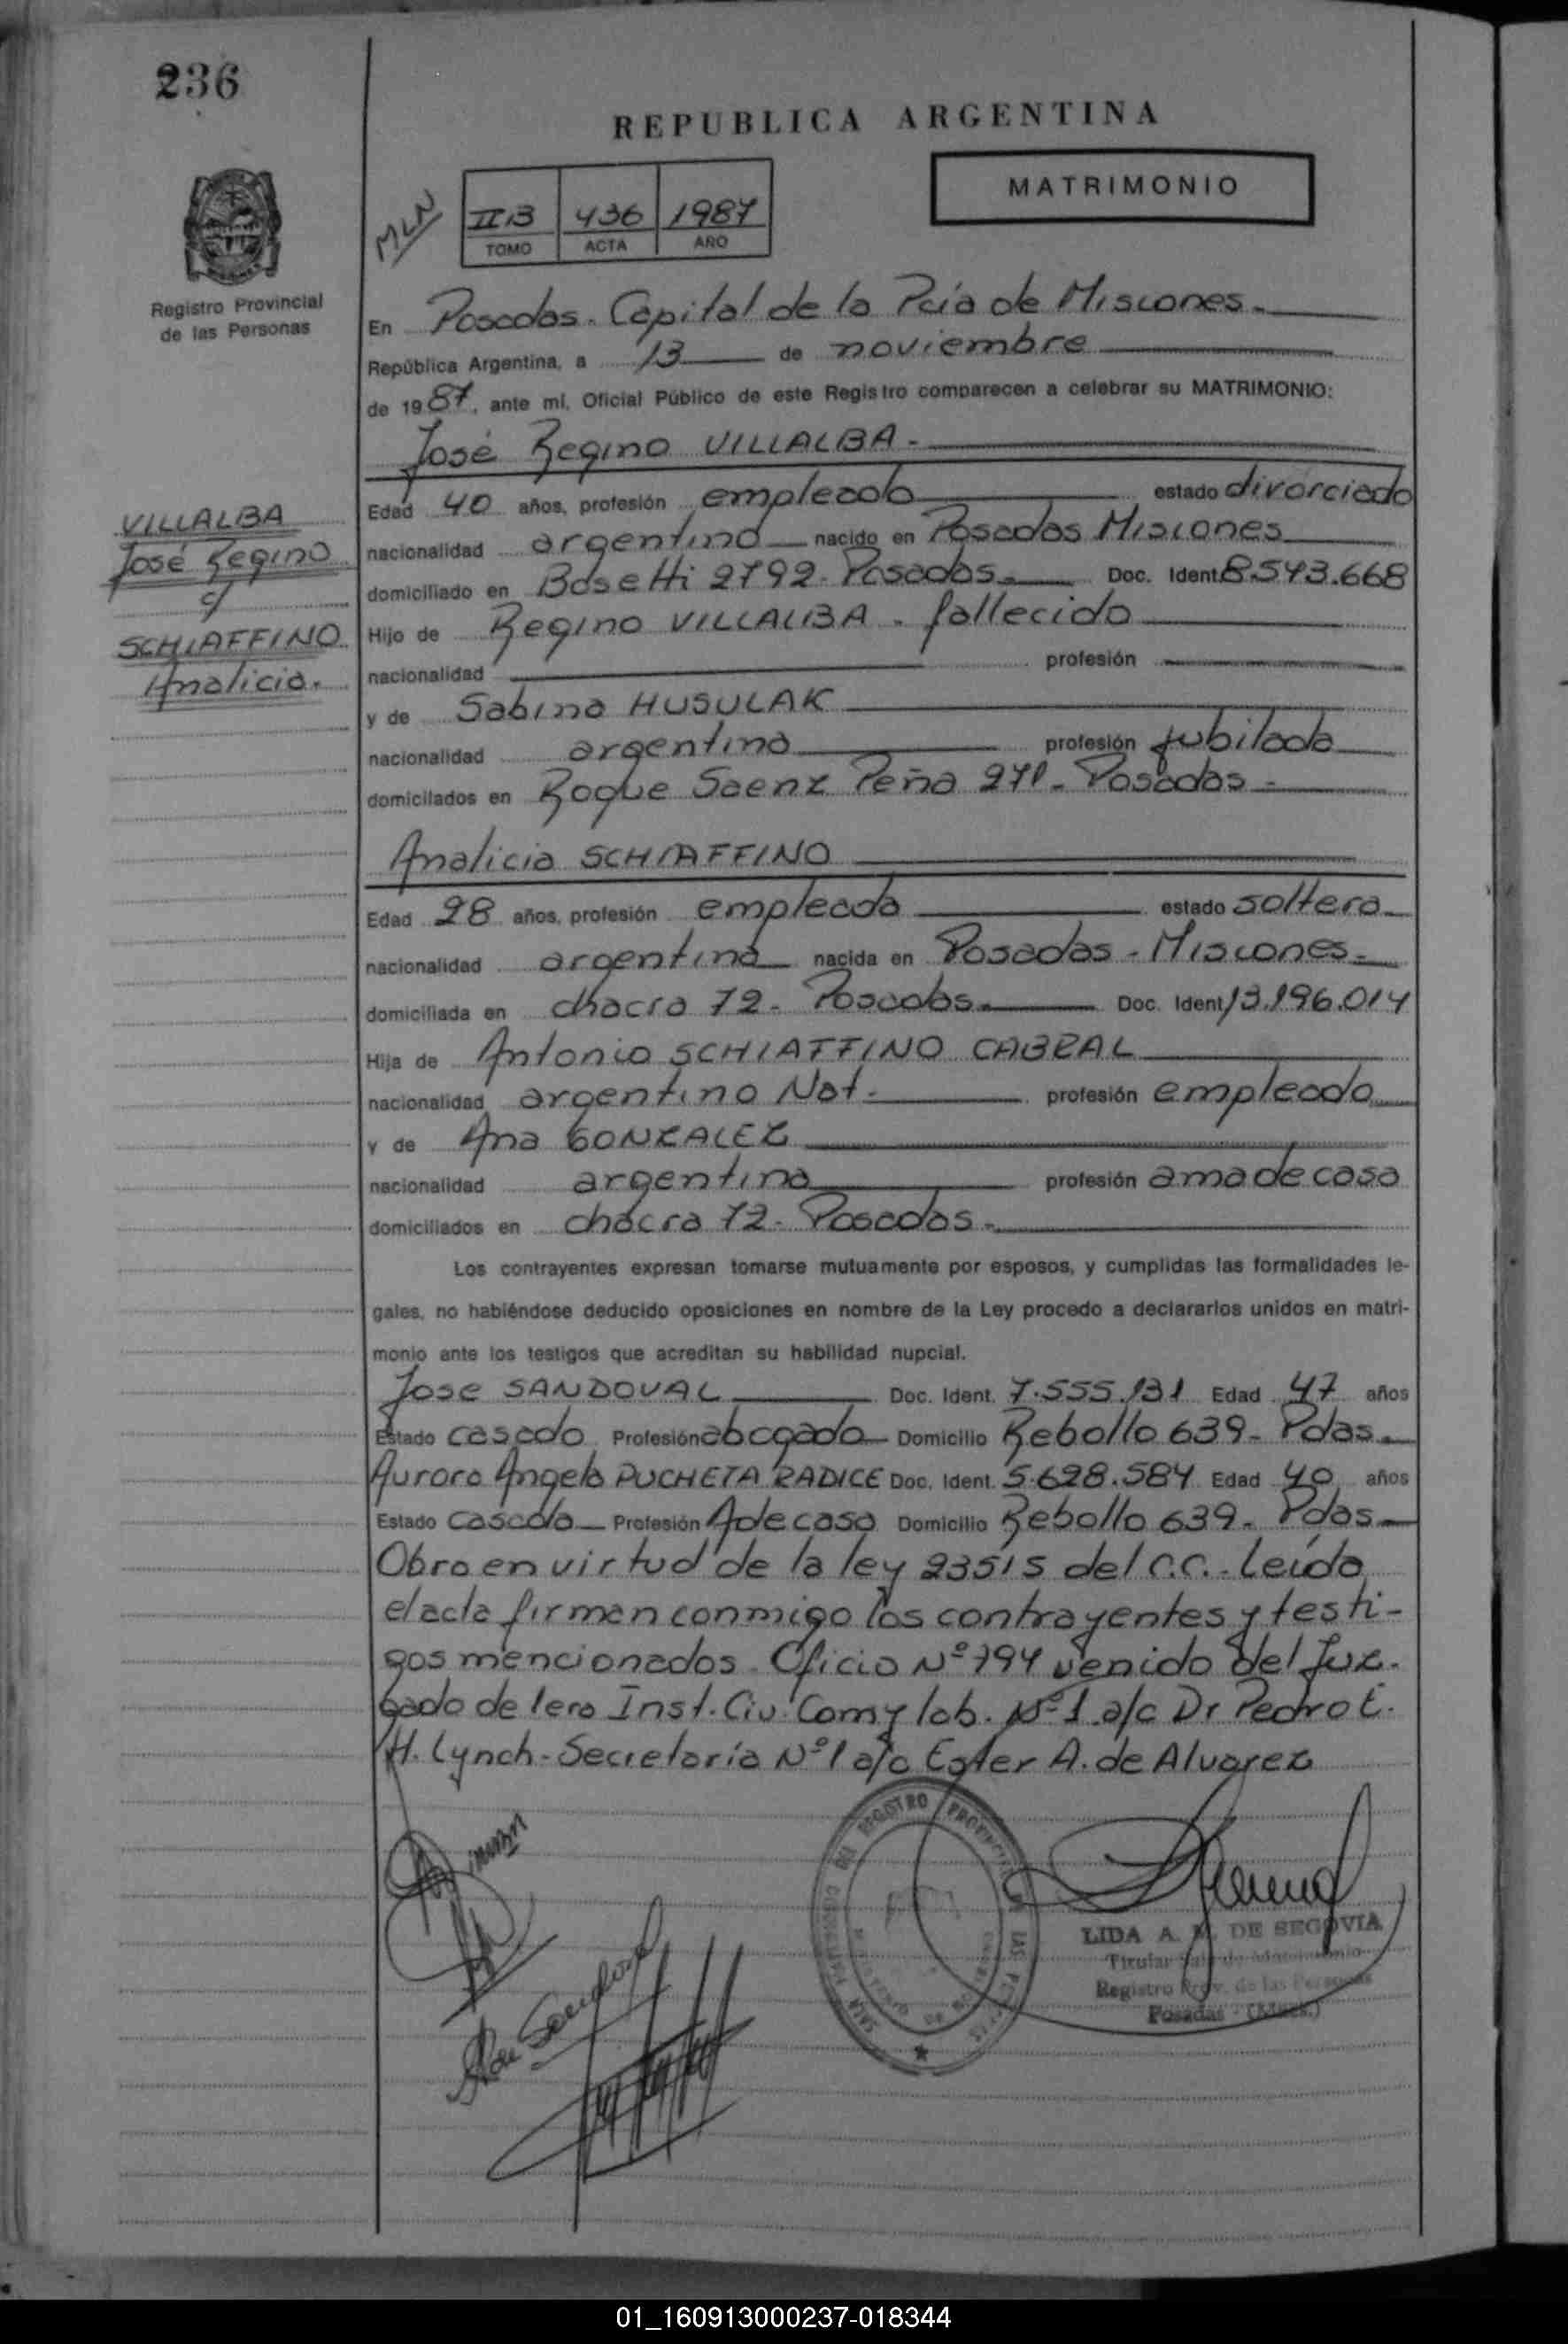 236
REPUBLICA ARGENTINA
MATRIMONIO
MLN
II B 436 1987
TOMO ACTA AÑO
Registro Provincial
de las Personas
En Posadas. Capital de la Pcia de Misiones.
República Argentina, a 13 de noviembre
de 1987, ante mi, Oficial Público de este Registro comparecen a celebrar su MATRIMONIO:
José Regino VILLALBA.
VILLALBA
José Regino
c/
SCHIAFFINO
Analicia.
Edad 40 años, profesión empleado estado divorciado
nacionalidad argentino nacido en Posadas Misiones
domiciliado en Bosetti 2792. Posadas. Doc. Ident. 8.543.668
Hijo de Regino VILLALBA. fallecido
nacionalidad profesión
y de Sabina HUSULAK
nacionalidad argentina profesión jubilada
domicilados en Roque Saenz Peña 271. Posadas.
Analicia SCHIAFFINO
Edad 28 años, profesión empleada estado soltera
nacionalidad argentina nacida en Posadas - Misiones.
domiciliada en chacra 72. Posadas. Doc. Ident 13.196.014
Hija de Antonio SCHIAFFINO CABRAL
nacionalidad argentino Nat. profesión empleado
y de Ana GONZALEZ
nacionalidad argentina profesión ama de casa
domiciliados en chacra 72. Posadas.
Los contrayentes expresan tomarse mutuamente por esposos, y cumplidas las formalidades le-
gales, no habiéndose deducido oposiciones en nombre de la Ley procedo a declararlos unidos en matri-
monio ante los testigos que acreditan su habilidad nupcial.
Jose SANDOVAL Doc. Ident. 7.555.131 Edad 47 años
Estado casado Profesión abogado Domicilio Rebollo 639. Pdas.
Aurora Angela PUCHETA RADICE Doc. Ident. 5.628.584 Edad 40 años
Estado casada Profesión A de casa Domicilio Rebollo 639. Pdas.
Obro en virtud de la ley 23515 del C.C. - Leída
el acta firman conmigo los contrayentes y testi-
gos mencionados. Oficio Nº 794 venido del Juz-
gado de 1era Inst. Civ. Com y lab. Nº 1 a/c Dr Pedro E.
H. Lynch - Secretaría Nº 1 a/c Ester A. de Alvarez
A de Sandoval
REGISTRO PROVINCIAL DE LAS PERSONAS
LIDA A. M. DE SEGOVIA
Titular de Matrimonio
Registro Prov. de las Personas
Posadas - (Mnes.)
01_160913000237-018344